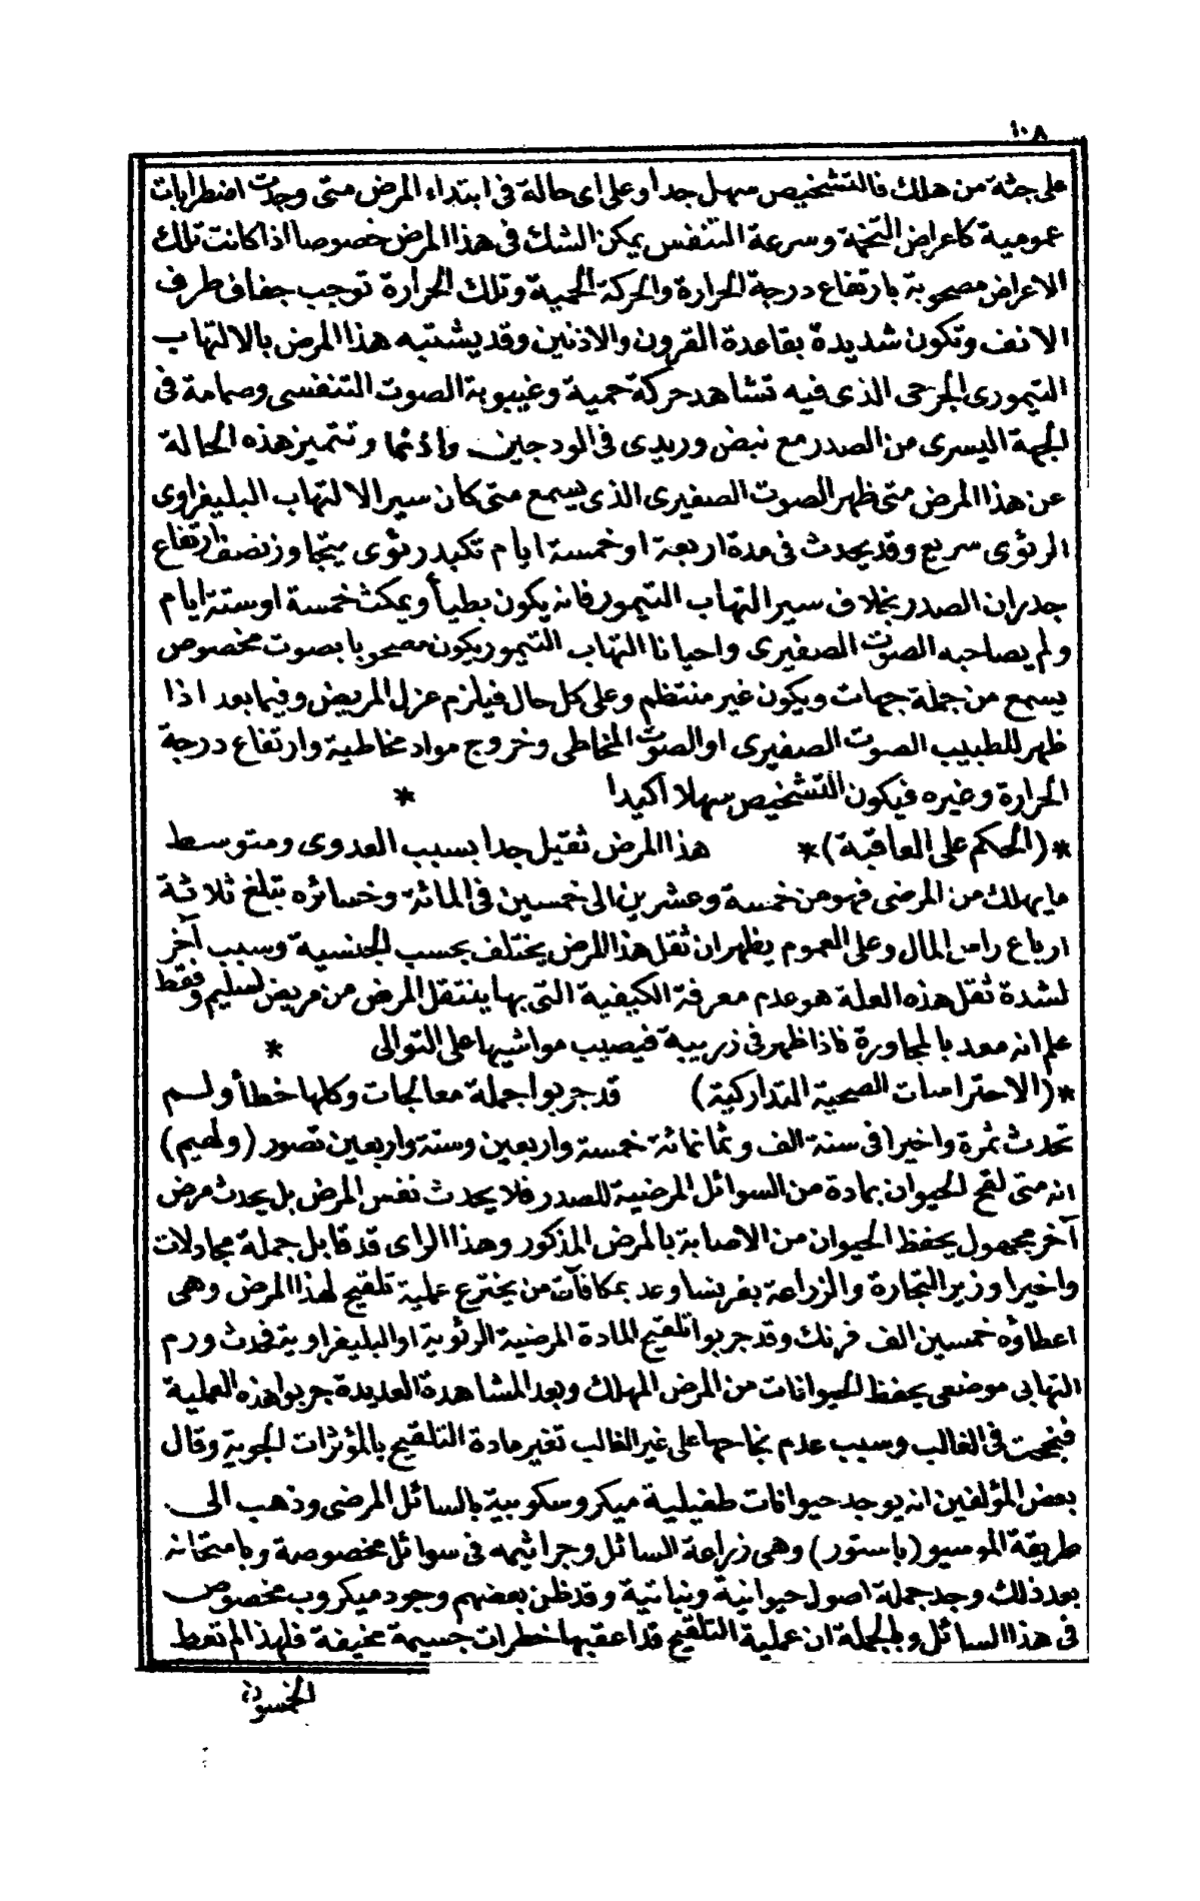 ١٠٨
على جثة من هلك فالتشخيص سهل جدا وعلى اى حالة فى ابتداء المرض متى وجدت اضطرابات
عمومية كاعراض التخمة وسرعة التنفس يمكن الشك فى هذا المرض خصوصا اذا كانت تلك
الاعراض مصحوبة بارتفاع درجة الحرارة والحركة الحمية وتلك الحرارة توجب جفاف طرف
الانف وتكون شديدة بقاعدة القرون والاذنين وقد يشتبه هذا المرض بالالتهاب
التيمورى الجرحى الذى فيه تشاهد حركة حمية وغيبوبة الصوت التنفسى وصمامة فى
الجهة اليسرى من الصدر مع نبض وريدى فى الودجين واذئما وتتميز هذه الحالة
عن هذا المرض متى ظهر الصوت الصفيرى الذى يسمع متى كان سير الالتهاب البليفراوى
الرئوى سريع وقد يحدث فى مدة اربعة او خمسة ايام تكبد رئوى يتجاوز نصف ارتفاع
جدران الصدر بخلاف سير التهاب التيمور فانه يكون بطيأ ويمكث خمسة او ستة ايام
ولم يصاحبه الصوت الصفيرى واحيانا التهاب التيمور يكون مصحوبا بصوت مخصوص
يسمع من جملة جهات ويكون غير منتظم وعلى كل حال فيلزم عزل المريض وفيما بعد اذا
ظهر للطبيب الصوت الصفيرى او الصوت المخاطى وخروج مواد مخاطية وارتفاع درجة
الحرارة وغيره فيكون التشخيص سهلا اكيدا *
*(الحكم على العاقبة)* هذا المرض ثقيل جدا بسبب العدوى ومتوسط
ما يهلك من المرضى فهو من خمسة وعشرين الى خمسين فى المائة وخسائره تبلغ ثلاثة
ارباع راس المال وعلى العموم يظهر ان ثقل هذا المرض يختلف بحسب الجنسية وسبب آخر
لشدة ثقل هذه العلة هو عدم معرفة الكيفية التى بها ينتقل المرض من مريض لسليم وفقط
علم انه معد بالمجاورة فاذا ظهر فى زريبة فيصيب مواشيها على التوالى *
*(الاحتراسات الصحية التداركية) قد جربوا جملة معالجات وكلها خطأ ولم
تحدث ثمرة واخيرا فى سنة الف وثمانمائة خمسة واربعين وستة واربعين تصور (ولهيم)
انه متى لقح الحيوان بمادة من السوائل المرضية للصدر فلا يحدث نفس المرض بل يحدث مرض
آخر مجهول يحفظ الحيوان من الاصابة بالمرض المذكور وهذا الراى قد قابل جملة مجادلات
واخيرا وزير التجارة والزراعة بفرنسا وعد بمكافآت من يخترع عملية تلقيح لهذا المرض وهى
اعطاؤه خمسين الف فرنك وقد جربوا تلقيح المادة المرضية الرئوية او البليفراوية فحدث ورم
التهابى موضعى يحفظ الحيوانات من المرض المهلك وبعد المشاهدة العديدة جربوا هذه العملية
فنجحت فى الغالب وسبب عدم نجاحها على غير الغالب تغير مادة التلقيح بالمؤثرات الجوية وقال
بعض المؤلفين انه يوجد حيوانات طفيلية ميكروسكوبية بالسائل المرضى وذهب الى
طريقة الموسيو (باستور) وهى زراعة السائل وجراثيمه فى سوائل مخصوصة وبامتحانه
بعد ذلك وجد جملة اصول حيوانية ونباتية وقد ظن بعضهم وجود ميكروب مخصوص
فى هذا السائل وبالجملة ان عملية التلقيح قد اعقبها خطرات جسيمة مخيفة فلهذا لم تعط
الخمسون